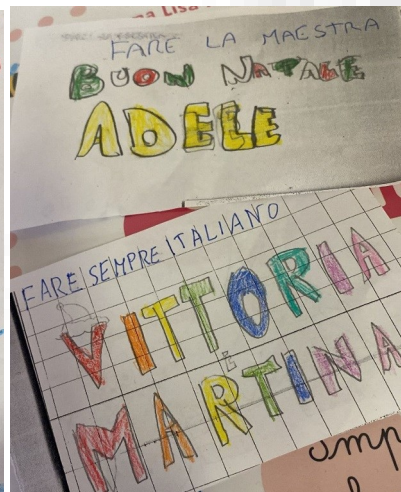 na Lisa
FARE LA MAESTRA
BUON NATALE
ADELE
FARE SEMPRE ITALIANO
VITTORIA
E
MARTINA